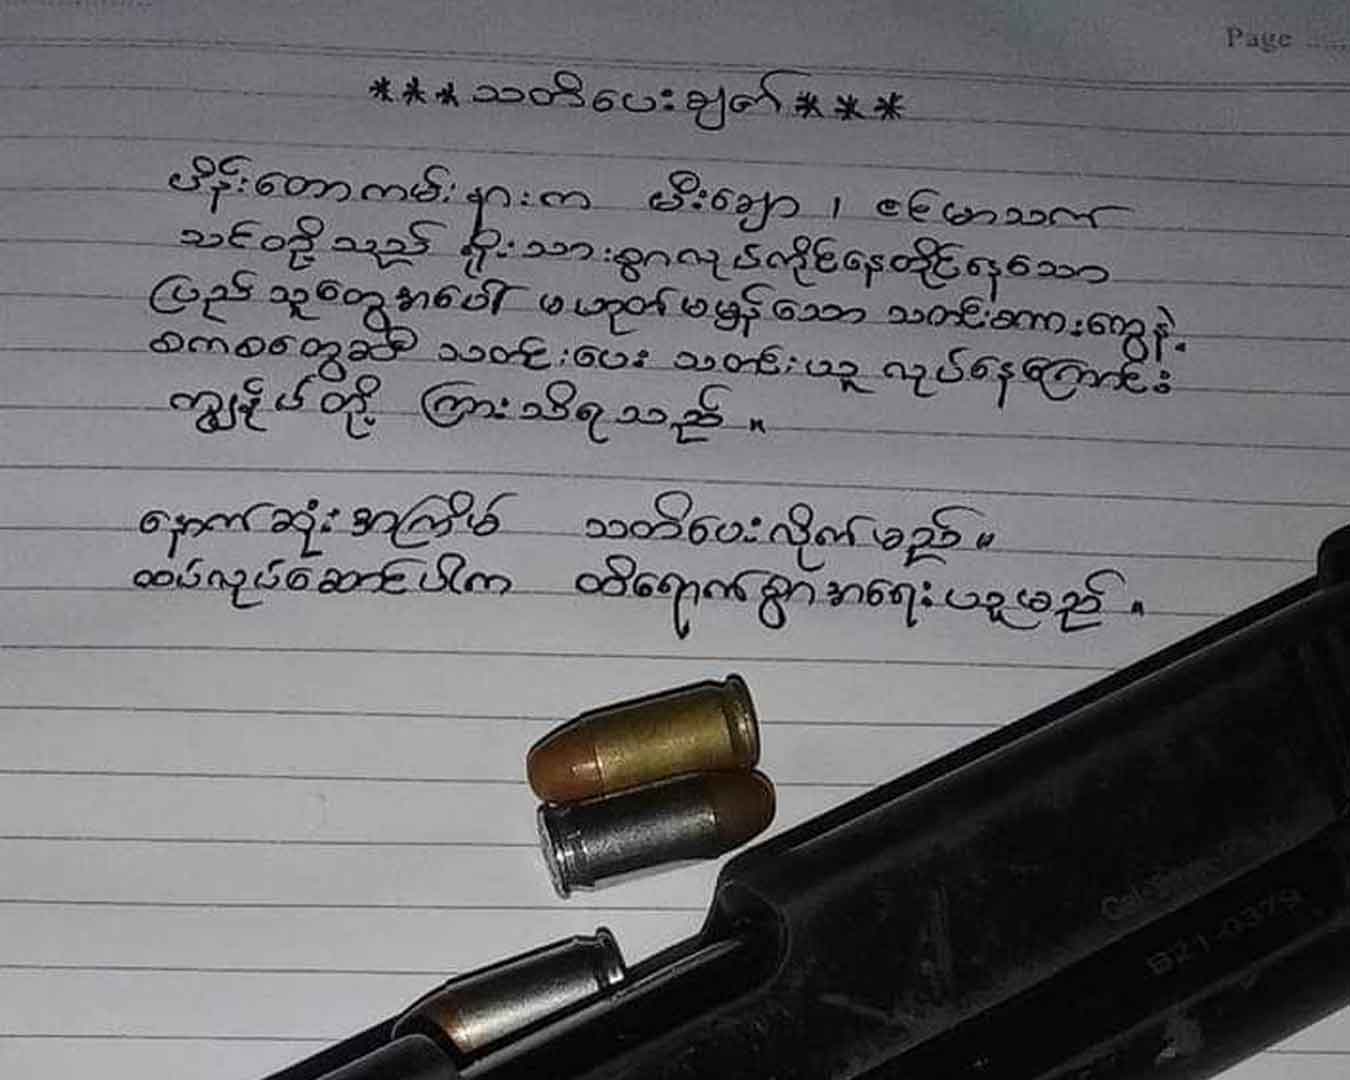 Page
*** သတိပေးချက် ***
ပိန်းတောကမ်းနားက မီးချော ၊ ဇင်မာသက်
သင်တို့သည် ရိုးသားစွာလုပ်ကိုင်နေထိုင်နေသော
ပြည်သူတွေအပေါ် မဟုတ်မမှန်သော သတင်းစကားတွေနဲ့
စကစတွေဆီ သတင်းပေး သတင်းယူ လုပ်နေကြောင်း
ကျွန်ုပ်တို့ ကြားသိရသည်။
နောက်ဆုံးအကြိမ် သတိပေးလိုက်မည်။
ထပ်လုပ်ဆောင်ပါက ထိရောက်စွာအရေးယူမည်။